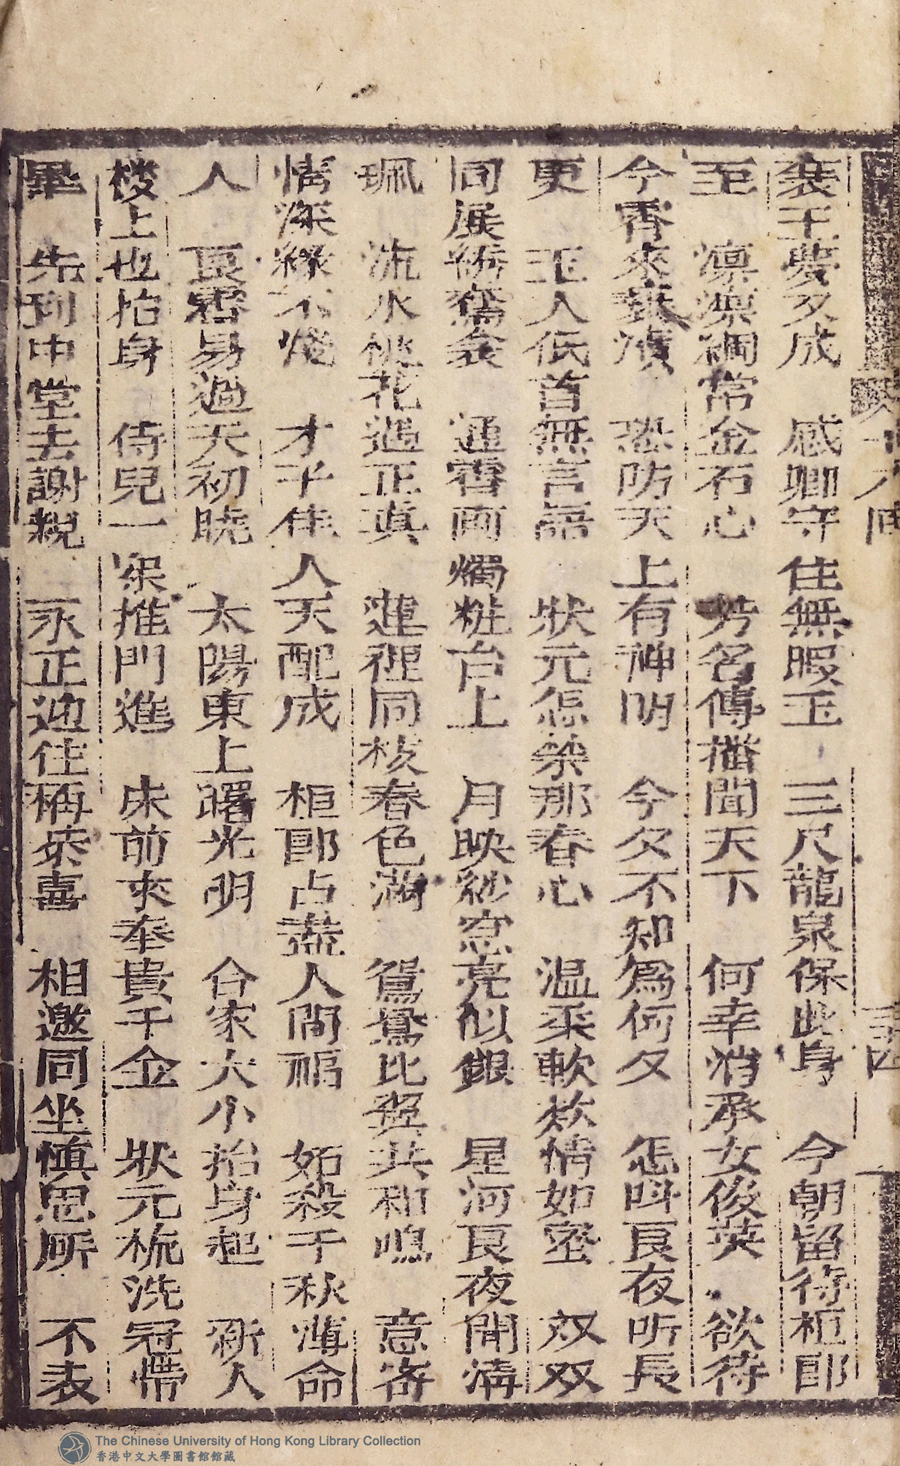 襄王夢又成　感卿守住無暇玉　三尺龍泉保此身　今朝留待柜郎
至　凛凛綱常金石心　芳名傳播聞天下　何幸消承女俊英　欲待
今宵來　瀆　恐防天上有神明　今夕不知為何夕　怎叫良夜听長
更　玉人低首無言語　狀元怎禁那春心　温柔軟欵情如蜜　双双
同展綉鴛衾　通宵画燭粧台上　月映紗窓亮似銀　星河良夜開溝
珮　流水桃花遇正真　蓮裡同枝春色滿　鴛鴦比翼共和鳴　意密
情深緣不淺　才子佳人天配成　柜郎占盡人間福　妬殺千秋薄命
人　良宵易過天初曉　太陽東上曙光明　合家大小抬身起　新人
楼上也抬身　侍兒一众推門進　床前來奉貴千金　狀元梳洗冠帶
畢　先到中堂去謝親　永正迎住稱恭喜　相邀同坐慎思所　不表
十八回
三十四
The Chinese University of Hong Kong Library Collection
香港中文大學圖書館館藏